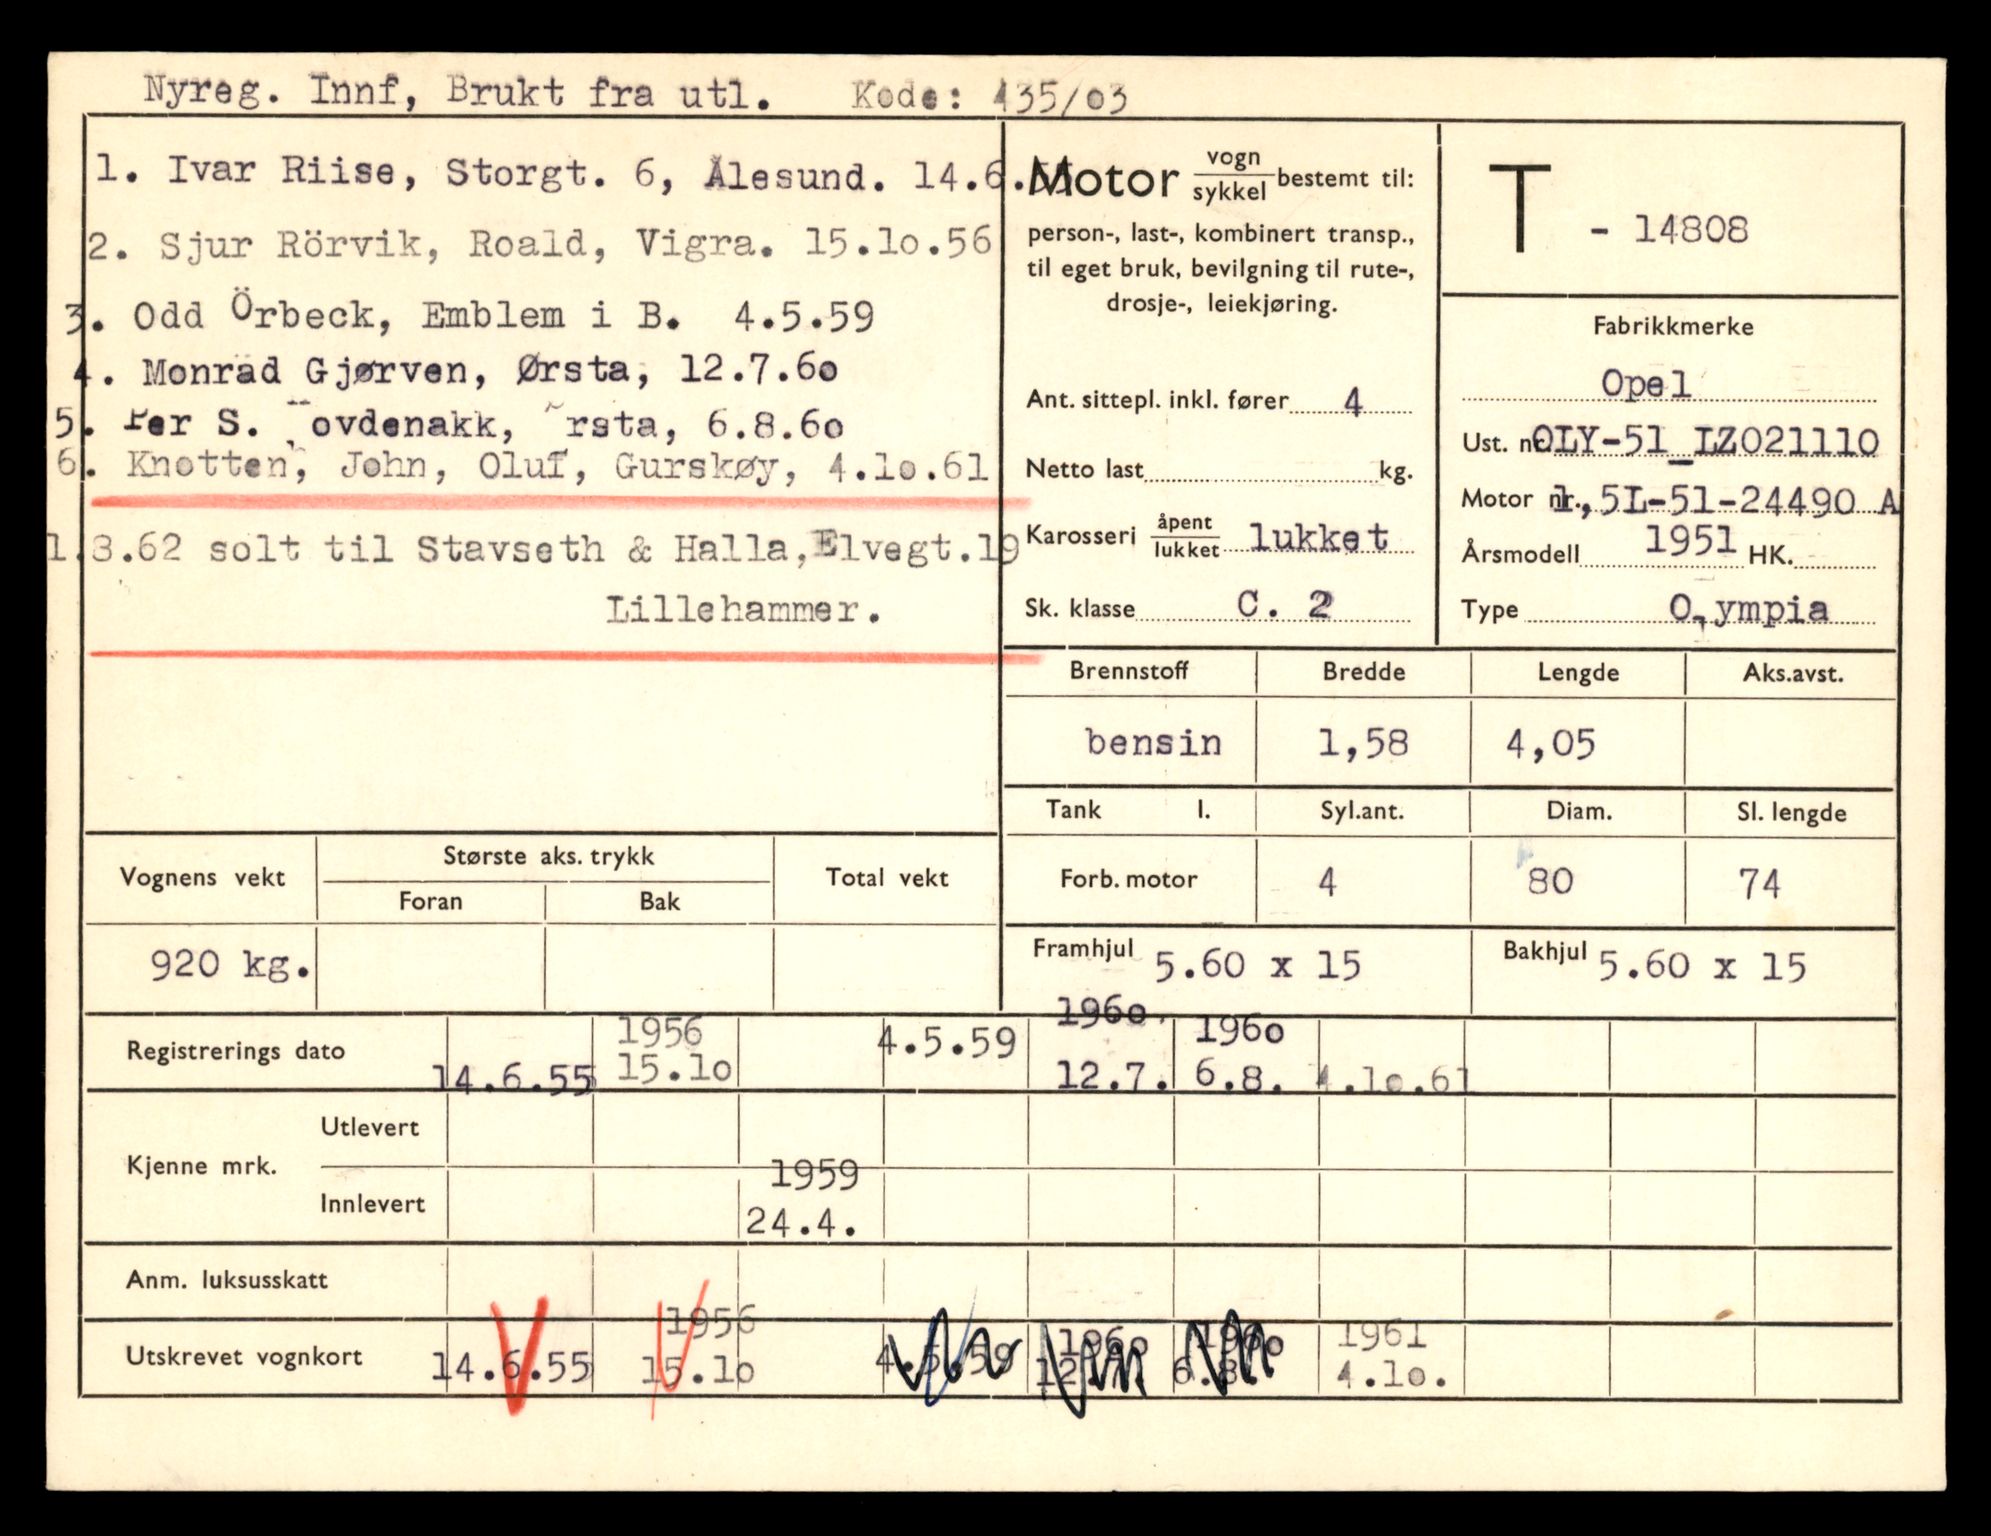 Nyreg. Innf, Brukt fra utl. Kode: 435/o3
1. Ivar Riise, Storgt. 6, Ålesund. 14.6.55
2. Sjur Rörvik, Roald, Vigra. 15.1o.56
3. Odd Örbeck, Emblem i B. 4.5.59
4. Monrad Gjørven, Ørsta, 12.7.6o
5. Per S. ovdenakk, rsta, 6.8.6o
6. Knotten, John, Oluf, Gurskøy, 4.1o.61
1.8.62 solt til Stavseth & Halla, Elvegt.19
Lillehammer.
Motor vogn/sykkel bestemt til:
person-, last-, kombinert transp.,
til eget bruk, bevilgning til rute-,
drosje-, leiekjøring.
Ant. sittepl. inkl. fører 4
Netto last kg.
Karosseri åpent/lukket lukket
Sk. klasse C. 2
T - 14808
Fabrikkmerke
Opel
Ust. nr. OLY-51_LZ021110
Motor nr. 1,5L-51-24490 A
Årsmodell 1951 HK.
Type O,ympia
Brennstoff Bredde Lengde Aks.avst.
bensin 1,58 4,05
Tank l. Syl.ant. Diam. Sl. lengde
Forb. motor 4 80 74
Framhjul 5.60 x 15 Bakhjul 5.60 x 15
Vognens vekt Største aks. trykk Total vekt
Foran Bak
920 kg.
1956 4.5.59 196o. 196o
Registrerings dato 14.6.55 15.1o 12.7. 6.8. 4.1o.61
Utlevert
Kjenne mrk.
1959
Innlevert 24.4.
Anm. luksusskatt
1956 196o 196o 1961
Utskrevet vognkort 14.6.55 15.1o 4.5.59 12.7. 6.8. 4.1o.